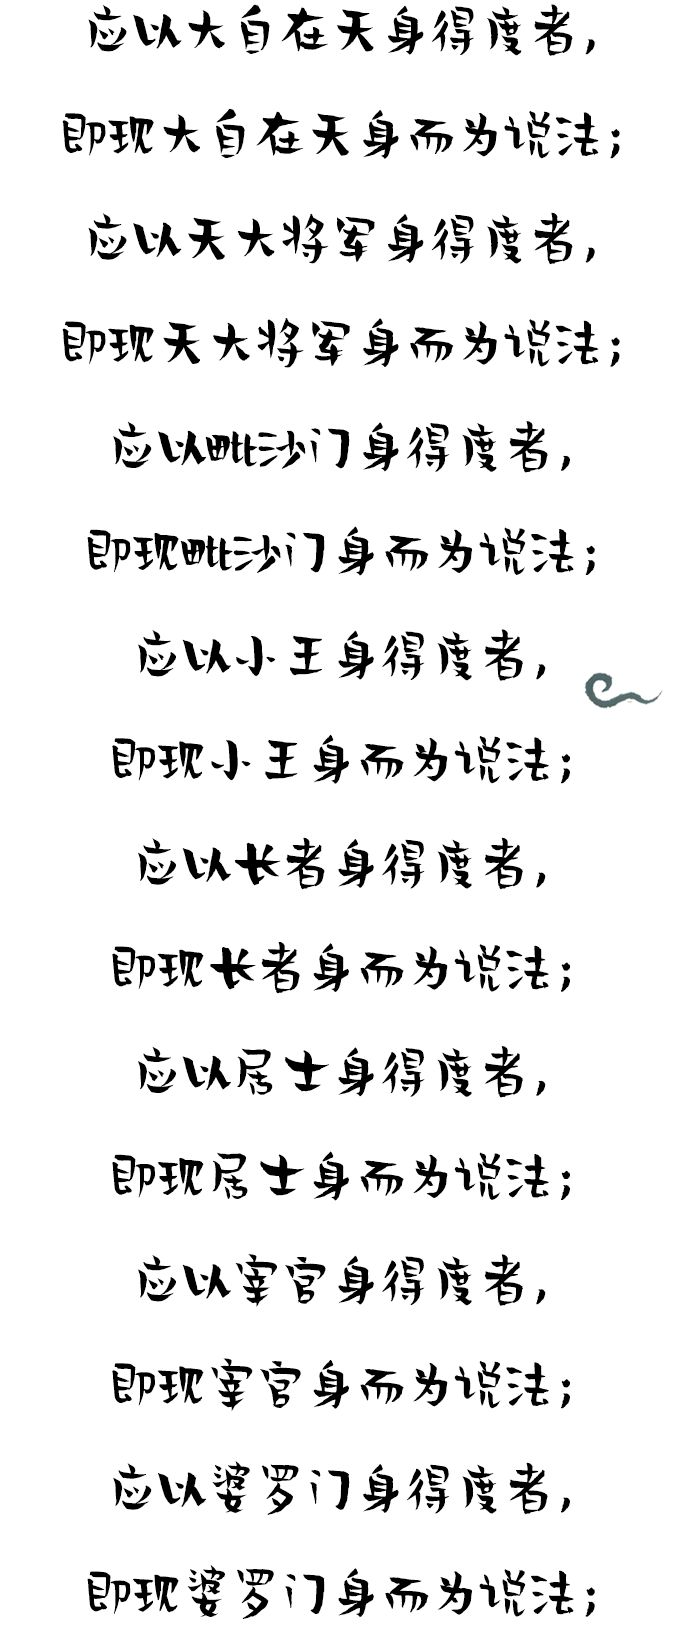 应以大自在天身得度者，
即现大自在天身而为说法；
应以天大将军身得度者，
即现天大将军身而为说法；
应以毗沙门身得度者，
即现毗沙门身而为说法；
应以小王身得度者，
即现小王身而为说法；
应以长者身得度者，
即现长者身而为说法；
应以居士身得度者，
即现居士身而为说法；
应以宰官身得度者，
即现宰官身而为说法；
应以婆罗门身得度者，
即现婆罗门身而为说法；